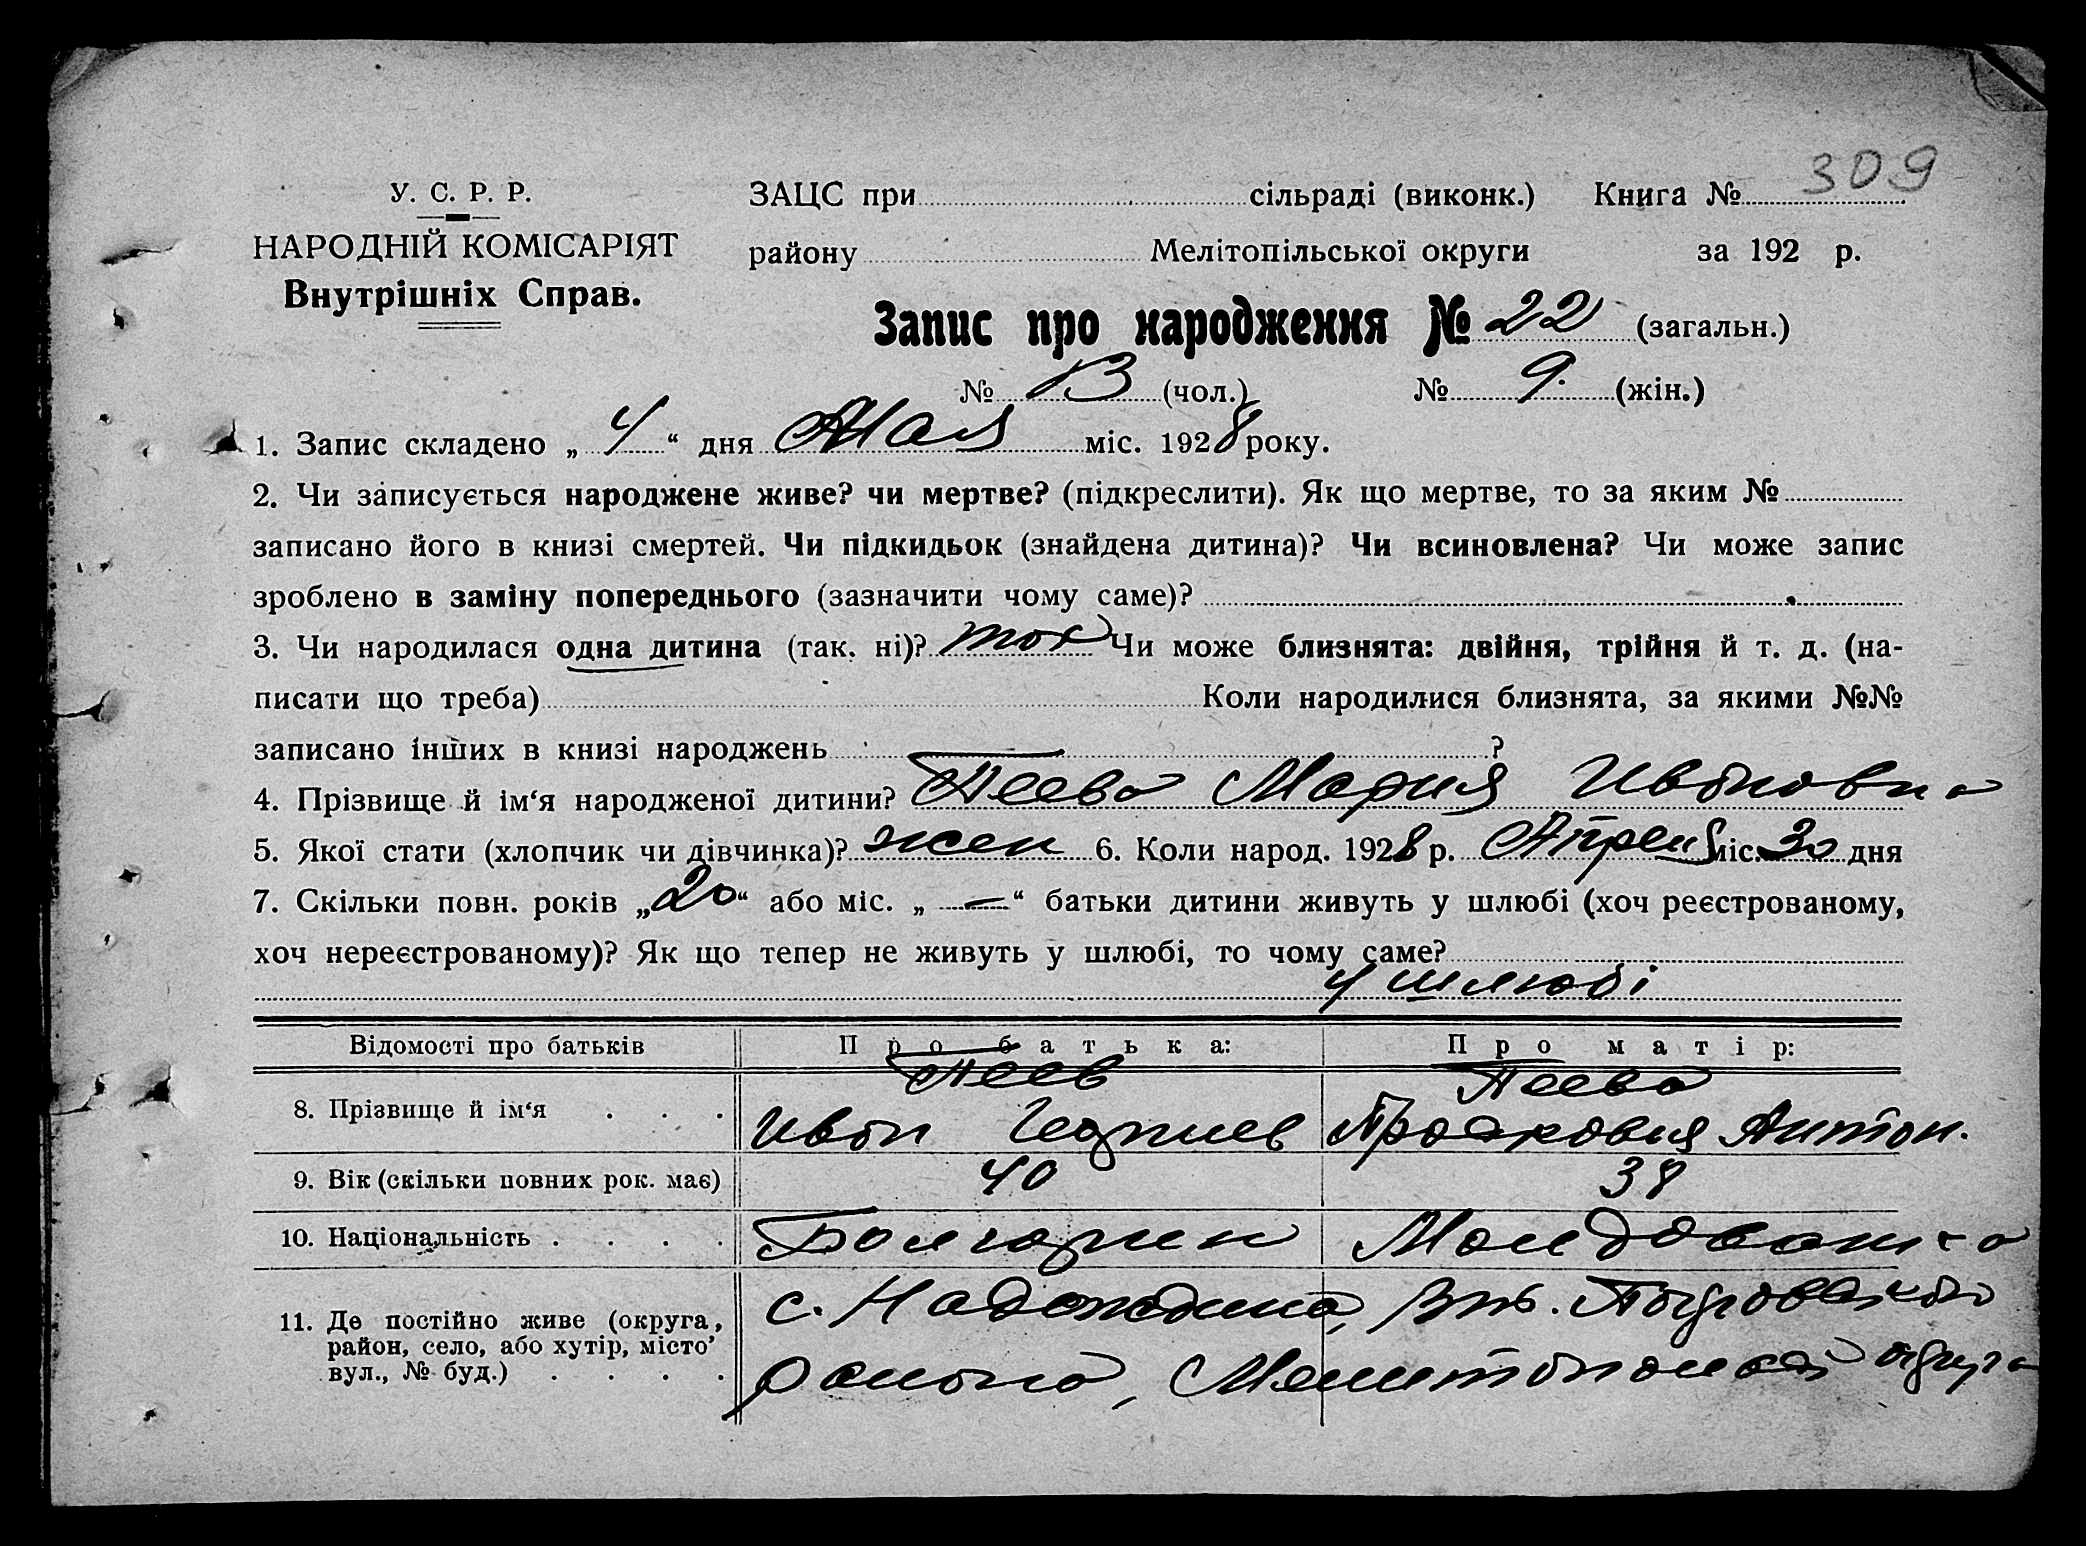 309
У. С. Р. Р.
НАРОДНІЙ КОМІСАРІЯТ
Внутрішніх Справ.
ЗАЦС при сільраді (виконк.) Книга №
району Мелітопільської округи за 192 р.
Запис про народження № 22 (загальн.)
№ 13 (чол.) № 9. (жін.)
1. Запис складено „ 4 “ дня Мая міс. 1928 року.
2. Чи записується народжене живе? чи мертве? (підкреслити). Як що мертве, то за яким №
записано його в книзі смертей. Чи підкидьок (знайдена дитина)? Чи всиновлена? Чи може запис
зроблено в заміну попереднього (зазначити чому саме)?
3. Чи народилася одна дитина (так. ні)? так Чи може близнята: двійня, трійня й т. д. (на-
писати що треба) Коли народилися близнята, за якими №№
записано інших в книзі народжень ?
4. Прізвище й ім‘я народженої дитини? Пеева Мария Ивановна
5. Якої стати (хлопчик чи дівчинка)? жен 6. Коли народ. 1928 р. Апреля міс. 30 дня
7. Скільки повн. років „20“ або міс. „ — “ батьки дитини живуть у шлюбі (хоч реєстрованому,
хоч нереєстрованому)? Як що тепер не живуть у шлюбі, то чому саме?
у шлюбі
Відомості про батьків Про батька: Про матір:
8. Прізвище й ім‘я . . . Пеев Иван Пеева Антон.
9. Вік (скільки повних рок. має) 40 38
10. Національність . . . . Болгарин Молдованка
11. Де постійно живе (округа,
район, село, або хутір, місто’
вул., № буд.) . . . .
с. Надеждино,
района, округа